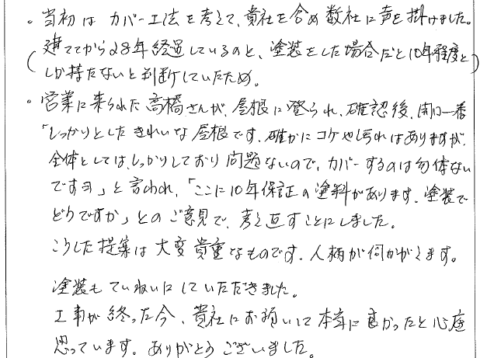 ・当初は カバー工法を考えて、貴社を含め数社に声を掛けました。
(建ててから28年経過しているのと、塗装をした場合だと10年程度と
しか持たないと判断していたため。)
・営業に来られた高橋さんが、屋根に登られ、確認後、開口一番
「しっかりとしたきれいな屋根です。確かにコケや汚れはありますが、
全体としては、しっかりしており問題ないので、カバーするのは勿体ない
ですヨ」と言われ、「ここに10年保証の塗料があります。塗装で
どうですか」とのご意見で、考え直すことにしました。
こうした提案は大変貴重なものです。人柄が伺がえます。
塗装もていねいにしていただきました。
工事が終った今、貴社にお願いして本当に良かったと心底
思っています。ありがとうございました。